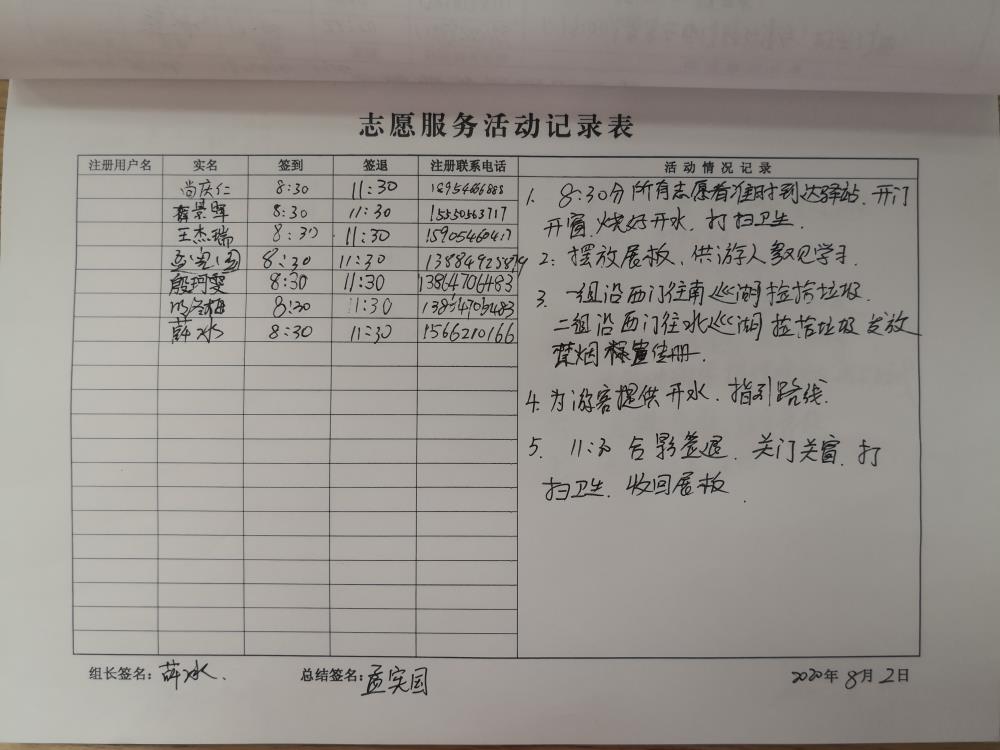 志愿服务活动记录表
注册用户名 实名 签到 签退 注册联系电话 活动情况记录
尚庆仁 8:30 11:30
景晖 8:30 11:30 15550563717
王杰瑞 8:30 11:30 15905460417
8:30 11:30
殷珂雯 8:30 11:30 13864706483
8:30 11:30 13864706483
薛冰 8:30 11:30 1566210166
1. 8:30分所有志愿者准时到达驿站.开门
开窗.烧好开水.打扫卫生.
2: 摆放展板、供游人参见学习.
3. 一组沿西门往南巡湖捡拾垃圾.
二组沿西门往北巡湖捡拾垃圾发放
禁烟 宣传册.
4.为游客提供开水.指引路线.
5. 11:30 合影签退.关门关窗.打
扫卫生.收回展板.
组长签名: 薛冰.
总结签名: 孟宪国
2020年8月2日